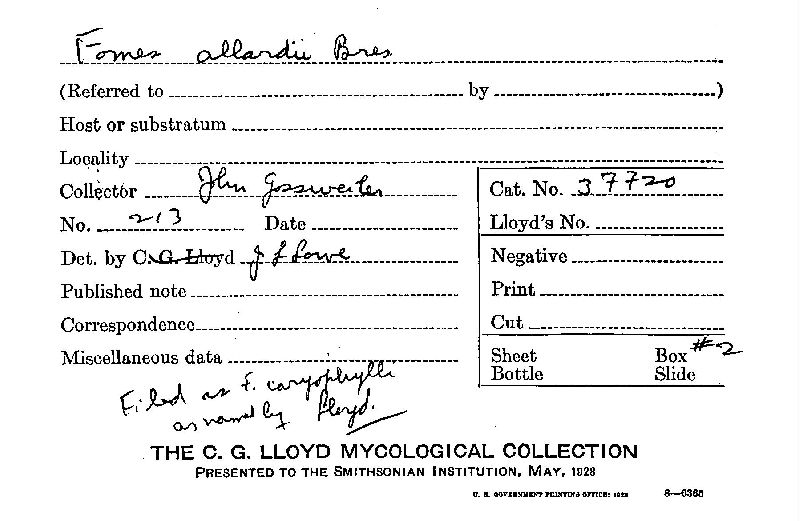 Fomes allardii Bres
(Referred to by )
Host or substratum
Locality
Collector John Gossweiler
No. 213 Date
Det. by C. G. Lloyd J L Lowe
Published note
Correspondence
Miscellaneous data
Filed as F. caryophylli
as named by Lloyd.
Cat. No. 37720
Lloyd's No.
Negative
Print
Cut
Sheet Box #2
Bottle Slide
THE C. G. LLOYD MYCOLOGICAL COLLECTION
PRESENTED TO THE SMITHSONIAN INSTITUTION, MAY, 1928
U. S. GOVERNMENT PRINTING OFFICE: 1928 8—6365